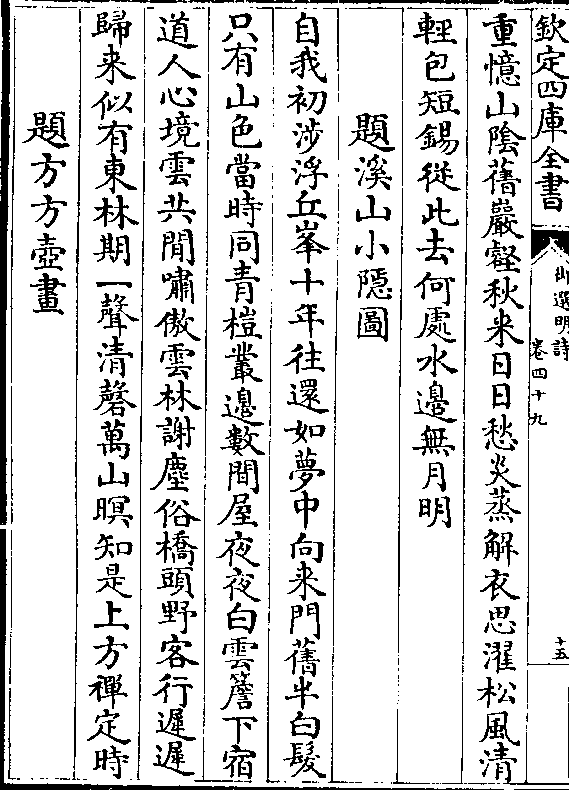 欽定四庫全書
御選明詩
卷四十九
十五
重憶山陰舊巖壑秋来日日愁炎蒸解衣思濯松風清
輕包短錫從此去何處水邊無月明
題溪山小隠圖
自我初涉浮丘峯十年往還如夢中向来門舊半白髮
只有山色當時同青榿叢邊數間屋夜夜白雲簷下宿
道人心境雲共閒嘯傲雲林謝塵俗橋頭野客行遲遲
歸来似有東林期一聲清磬萬山暝知是上方禪定時
題方方壺畫